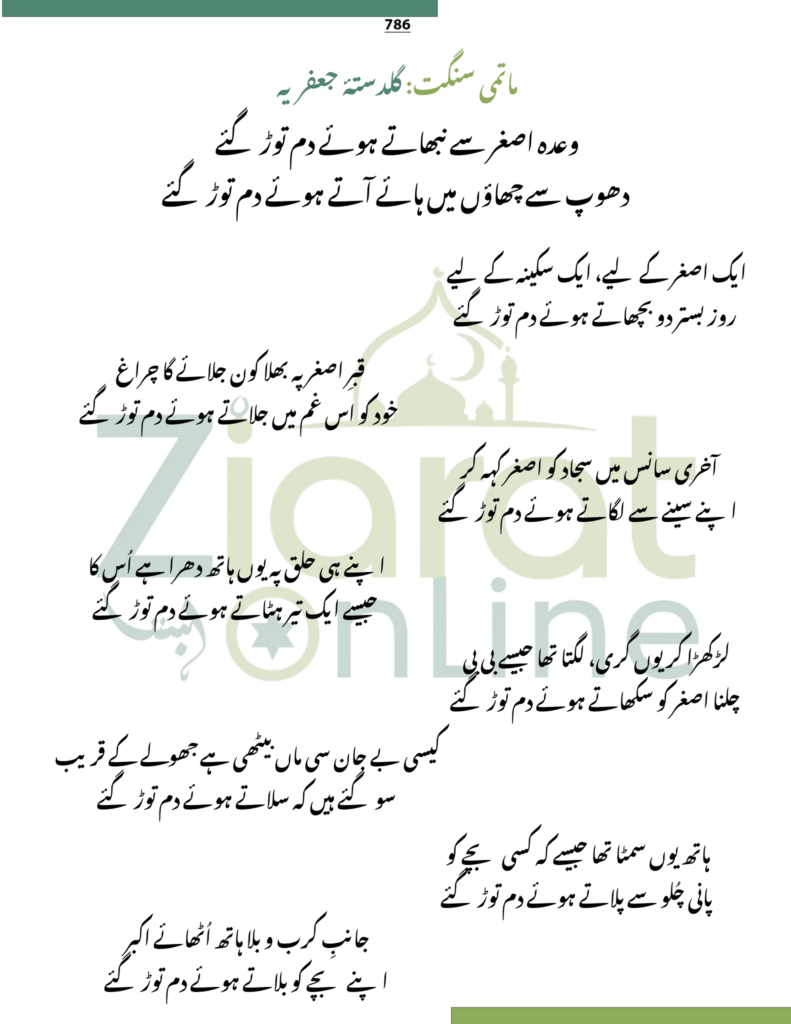 786
ماتمی سنگت: گلدستۂ جعفریہ
وعدہ اصغر سے نبھاتے ہوئے دم توڑ گئے
دھوپ سے چھاؤں میں ہائے آتے ہوئے دم توڑ گئے
ایک اصغر کے لیے، ایک سکینہ کے لیے
روز بستر دو بچھاتے ہوئے دم توڑ گئے
قبرِ اصغر پہ بھلا کون جلائے گا چراغ
خود کو اُس غم میں جلاتے ہوئے دم توڑ گئے
آخری سانس میں سجاد کو اصغر کہہ کر
اپنے سینے سے لگاتے ہوئے دم توڑ گئے
اپنے ہی حلق پہ یوں ہاتھ دھرا ہے اُس کا
جیسے ایک تیر ہٹاتے ہوئے دم توڑ گئے
لڑکھڑا کر یوں گری، لگتا تھا جیسے بی بی
چلنا اصغر کو سکھاتے ہوئے دم توڑ گئے
کیسی بے جان سی ماں بیٹھی ہے جھولے کے قریب
سو گئے ہیں کہ سلاتے ہوئے دم توڑ گئے
ہاتھ یوں سمٹا تھا جیسے کہ کسی بچے کو
پانی چُلو سے پلاتے ہوئے دم توڑ گئے
جانبِ کرب و بلا ہاتھ اُٹھائے اکبر
اپنے بچے کو بلاتے ہوئے دم توڑ گئے
Ziarat
OnLine